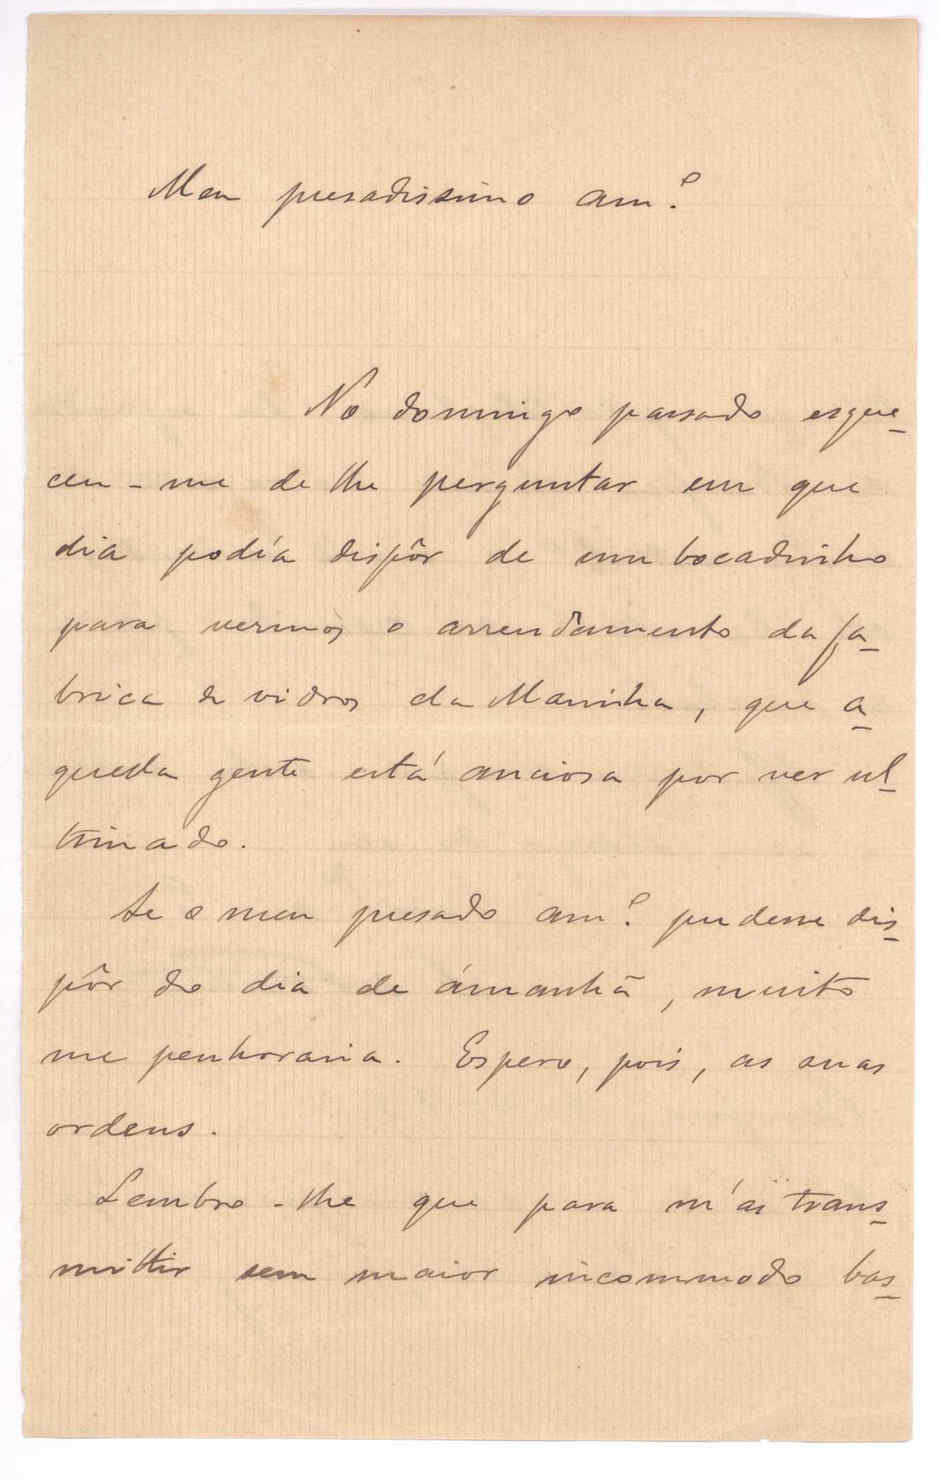 Meu presadissimo am.º
No domingo passado esque-
ceu-me de lhe perguntar em que
dia podía dispôr de um bocadinho
para vermos o arrendamento da fa-
brica de vidros da Marinha, que a-
quella gente está anciosa por ver ul-
timado.
Se o meu presado am.º pudesse dis-
pôr do dia de ámanhã, muito
me penhoraria. Espero, pois, as suas
ordens.
Lembro-lhe que para m'as trans-
mittir sem maior incommodo bas-